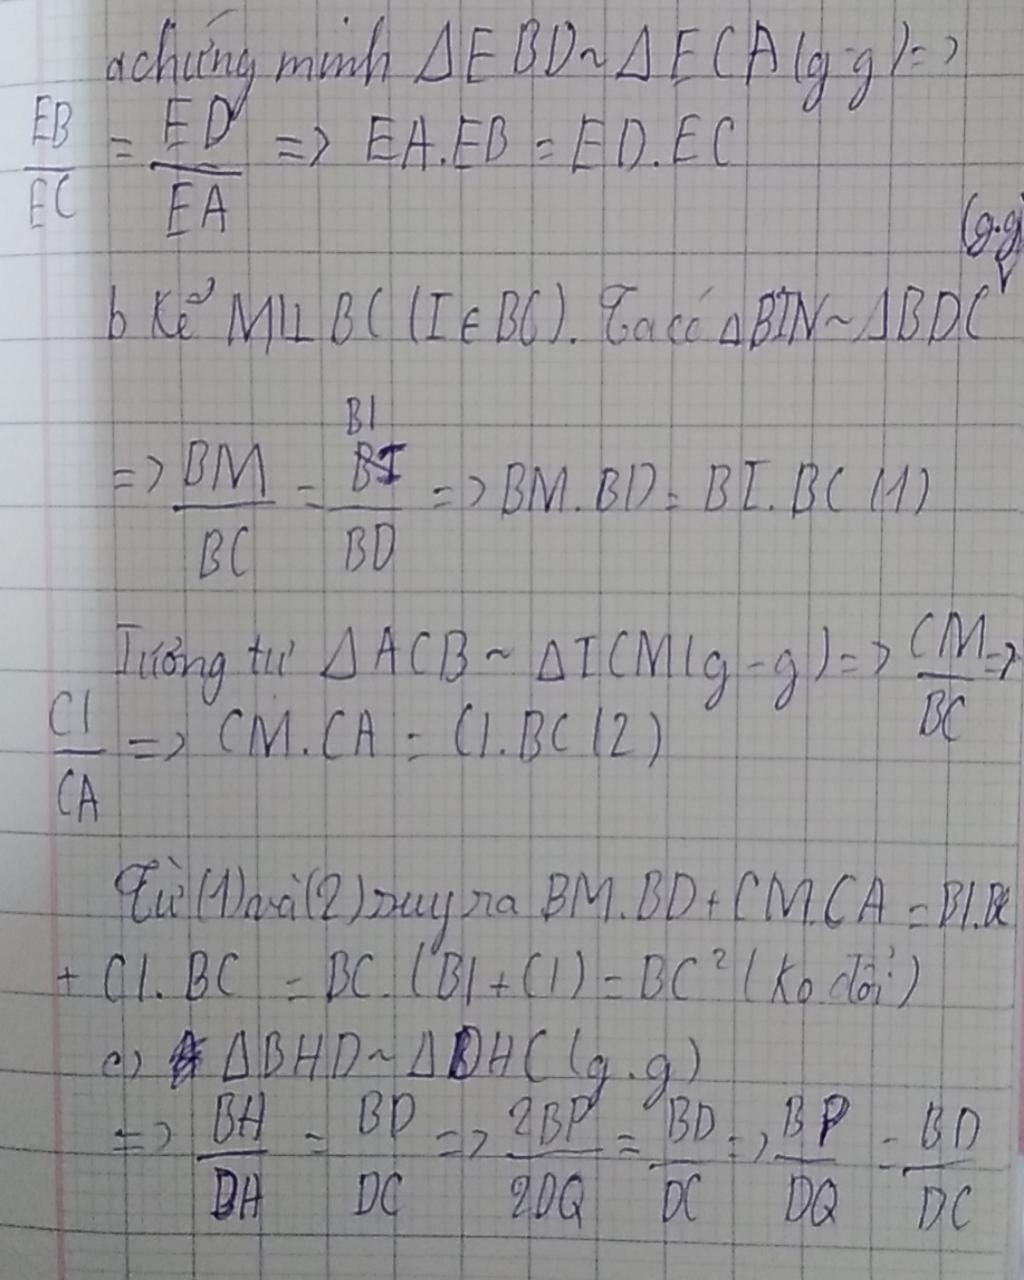 a chứng minh ΔEBD ~ ΔECA (g-g) =>
EB/EC = ED/EA => EA.EB = ED.EC
(g.g)
b Kẻ MI⊥BC (I∈BC). Ta có ΔBIN ~ ΔBDC
BI
=> BM/BC = BI/BD => BM.BD = BI.BC (1)
Tương tự ΔACB ~ ΔICM (g-g) => CM/BC =>
CI/CA => CM.CA = CI.BC (2)
Từ (1) và (2) suy ra BM.BD + CM.CA = BI.BC
+ CI.BC = BC.(BI+CI) = BC² (ko đổi)
c) ΔBHD ~ ΔDHC (g.g)
=> BH/DH = BD/DC => 2BP/2DQ = BD/DC => BP/DQ = BD/DC